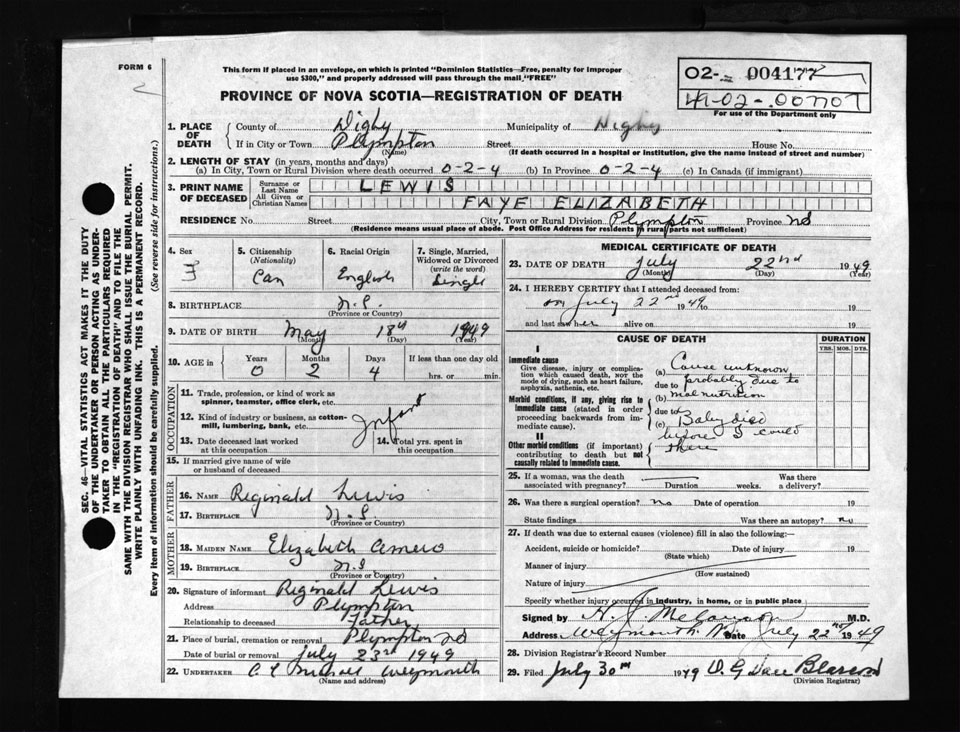 FORM 6
This form if placed in an envelope, on which is printed "Dominion Statistics—Free, penalty for improper
use $300," and properly addressed will pass through the mail, "FREE"
02- 004177
49-02-.007707
For use of the Department only
PROVINCE OF NOVA SCOTIA—REGISTRATION OF DEATH
1. PLACE OF DEATH County of Digby Municipality of Digby
If in City or Town Plympton (Name) Street House No.
(If death occurred in a hospital or institution, give the name instead of street and number)
2. LENGTH OF STAY (in years, months and days)
(a) In City, Town or Rural Division where death occurred 0-2-4 (b) In Province 0-2-4 (c) In Canada (if immigrant)
3. PRINT NAME OF DECEASED Surname or Last Name LEWIS
All Given or Christian Names FAYE ELIZABETH
RESIDENCE No. Street City, Town or Rural Division Plympton Province NS
(Residence means usual place of abode. Post Office Address for residents in rural parts not sufficient)
4. Sex F
5. Citizenship (Nationality) Can
6. Racial Origin English
7. Single, Married, Widowed or Divorced (write the word) Single
8. BIRTHPLACE N.S. (Province or Country)
9. DATE OF BIRTH May (Month) 18th (Day) 1949 (Year)
10. AGE in Years 0 Months 2 Days 4 If less than one day old hrs. or min.
OCCUPATION
11. Trade, profession, or kind of work as spinner, teamster, office clerk, etc.
12. Kind of industry or business, as cotton-mill, lumbering, bank, etc. Infant
13. Date deceased last worked at this occupation
14. Total yrs. spent in this occupation
15. If married give name of wife or husband of deceased
FATHER
16. NAME Reginald Lewis
17. BIRTHPLACE N.S. (Province or Country)
MOTHER
18. MAIDEN NAME Elizabeth Amero
19. BIRTHPLACE N.S (Province or Country)
20. Signature of informant Reginald Lewis
Address Plympton
Relationship to deceased Father
21. Place of burial, cremation or removal Plympton NS
Date of burial or removal July 23rd 1949
22. UNDERTAKER Weymouth
(Name and address)
MEDICAL CERTIFICATE OF DEATH
23. DATE OF DEATH July (Month) 22nd (Day) 1949 (Year)
24. I HEREBY CERTIFY that I attended deceased from:
on July 22nd 1949 to 19
and last saw her alive on 19
CAUSE OF DEATH
DURATION
YRS. MOS. DYS.
I
Immediate cause
Give disease, injury or complication which caused death, not the mode of dying, such as heart failure, asphyxia, asthenia, etc.
(a) Cause unknown
due to probably due to
(b) malnutrition
Morbid conditions, if any, giving rise to immediate cause (stated in order proceeding backwards from immediate cause).
due to
(c) Baby died
before I could
there
II
Other morbid conditions (if important) contributing to death but not causally related to immediate cause.
25. If a woman, was the death associated with pregnancy? Duration weeks. Was there a delivery?
26. Was there a surgical operation? no Date of operation 19
State findings Was there an autopsy? no
27. If death was due to external causes (violence) fill in also the following:—
Accident, suicide or homicide? (State which) Date of injury 19
Manner of injury (How sustained)
Nature of injury
Specify whether injury occurred in industry, in home, or in public place
Signed by M.D.
Address Weymouth NS Date July 22nd 1949
28. Division Registrar's Record Number
29. Filed July 30th 1949 (Division Registrar)
SEC. 46—VITAL STATISTICS ACT MAKES IT THE DUTY
OF THE UNDERTAKER OR PERSON ACTING AS UNDER-
TAKER TO OBTAIN ALL THE PARTICULARS REQUIRED
IN THE "REGISTRATION OF DEATH" AND TO FILE THE
SAME WITH THE DIVISION REGISTRAR WHO SHALL ISSUE THE BURIAL PERMIT.
WRITE PLAINLY WITH UNFADING INK. THIS IS A PERMANENT RECORD.
Every item of information should be carefully supplied. (See reverse side for instructions.)